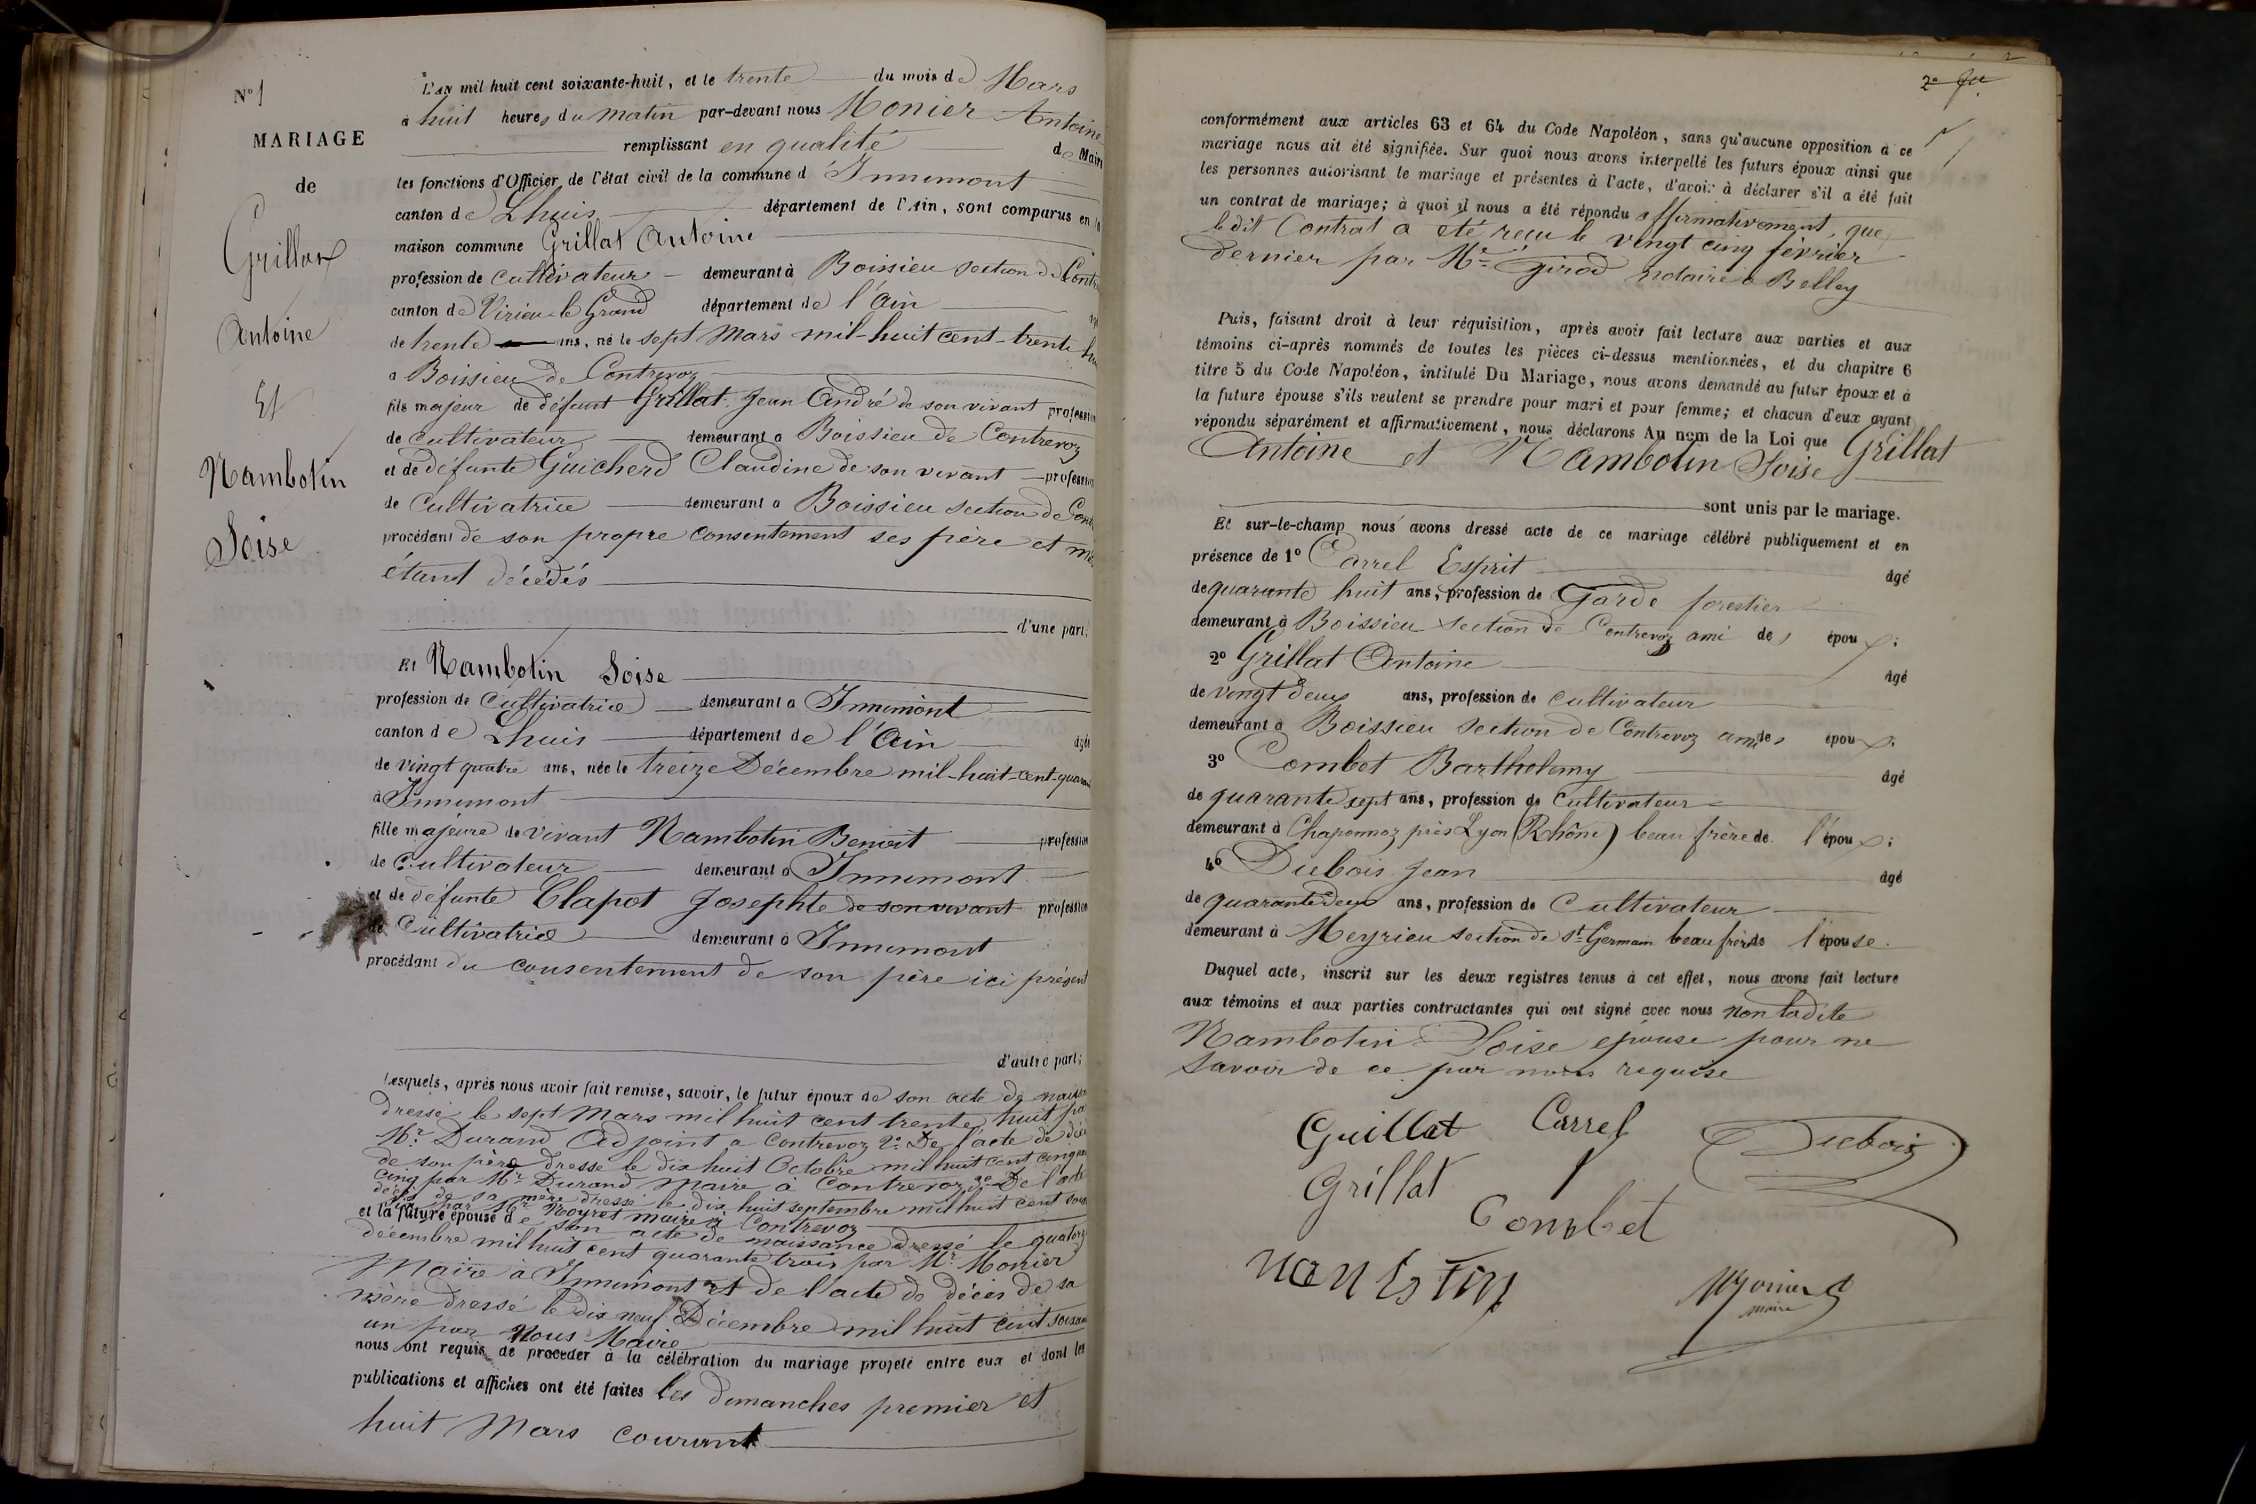 N° 1
MARIAGE
de
Grillat
Antoine
Et
Nambotin
Loise
L'an mil huit cent soixante-huit, et le trente du mois de Mars
à huit heures du matin par-devant nous Monier Antoine
remplissant en qualité de Maire
les fonctions d'Officier de l'état civil de la commune d'Innimont
canton de Lhuis département de l'Ain, sont comparus en la
maison commune Grillat Antoine
profession de cultivateur demeurant à Boissieu section de Contre
canton de Virieu-le-Grand département de l'Ain
de trente ans, né le sept Mars mil-huit cent-trente huit
à Boissieu de Contrevoz
fils majeur de défunt Grillat Jean André de son vivant profession
de cultivateur demeurant à Boissieu de Contrevoz
et de défunte Guicherd Claudine de son vivant profession
de Cultivatrice demeurant à Boissieu section de Cont
procédant de son propre consentement ses père et mère
étant décédés
d'une part;
Et Nambotin Loise
profession de Cultivatrice demeurant à Innimont
canton de Lhuis département de l'Ain âgée
de vingt quatre ans, née le treize Décembre mil-huit-cent-quaran
à Innimont
fille majeure de vivant Nambotin Benoit profession
de cultivateur demeurant à Innimont
et de défunte Clapot Josephte de son vivant profession
de Cultivatrice demeurant à Innimont
procédant du consentement de son père ici présent
d'autre part;
Lesquels, après nous avoir fait remise, savoir, le futur époux de son acte de naiss
dressé le sept Mars mil huit cent trente huit par
Mr Durand Adjoint à Contrevoz 2° De l'acte de décè
de son père dressé le dix huit Octobre mil huit cent cinquan
cinq par Mr Durand Maire à Contrevoz 3° De l'acte
décès de sa mère dressé le dix huit septembre mil huit cent soix
par Mr Noyret maire à Contrevoz
et la future épouse de son acte de naissance dressé le quatorz
décembre mil huit cent quarante trois par Mr Monier
Maire à Innimont et de l'acte de décès de sa
mère dressé le dix neuf Décembre mil huit cent soixan
un par Nous Maire
nous ont requis de procéder à la célébration du mariage projeté entre eux et dont les
publications et affiches ont été faites les dimanches premier et
huit Mars courant
2e
conformément aux articles 63 et 64 du Code Napoléon, sans qu'aucune opposition à ce
mariage nous ait été signifiée. Sur quoi nous avons interpellé les futurs époux ainsi que
les personnes autorisant le mariage et présentes à l'acte, d'avoir à déclarer s'il a été fait
un contrat de mariage; à quoi il nous a été répondu affirmativement, que
le dit Contrat a été reçu le vingt cinq février
dernier par Mr Girod notaire à Belley
Puis, faisant droit à leur réquisition, après avoir fait lecture aux parties et aux
témoins ci-après nommés de toutes les pièces ci-dessus mentionnées, et du chapitre 6
titre 5 du Code Napoléon, intitulé Du Mariage, nous avons demandé au futur époux et à
la future épouse s'ils veulent se prendre pour mari et pour femme; et chacun d'eux ayant
répondu séparément et affirmativement, nous déclarons Au nom de la Loi que Grillat
Antoine et Nambotin Loise
sont unis par le mariage.
Et sur-le-champ nous avons dressé acte de ce mariage célébré publiquement et en
présence de 1° Carrel Esprit âgé
de quarante huit ans, profession de Garde forestier
demeurant à Boissieu section de Contrevoz ami des époux;
2° Grillat Antoine âgé
de vingt deux ans, profession de cultivateur
demeurant à Boissieu section de Contrevoz ami des époux;
3° Combet Barthelemy âgé
de quarante sept ans, profession de cultivateur
demeurant à Chaponnoz près Lyon (Rhône) beau frère de l'époux;
4° Dubois Jean âgé
de quarante deux ans, profession de Cultivateur
demeurant à Meyrieu section de St Germain beau frère de l'épouse.
Duquel acte, inscrit sur les deux registres tenus à cet effet, nous avons fait lecture
aux témoins et aux parties contractantes qui ont signé avec nous non ladite
Nambotin Loise épouse pour ne
savoir de ce par nous requise
Guillat Carrel Dubois
Grillat
Combet
nanbotin
Monier
maire